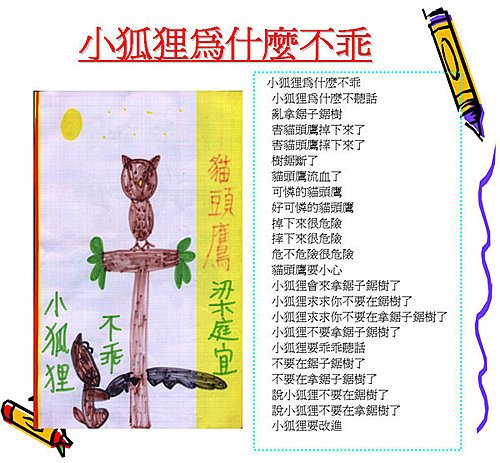 小狐狸為什麼不乖
貓頭鷹
梁庭宜
不乖
小狐狸
小狐狸為什麼不乖
小狐狸為什麼不聽話
亂拿鋸子鋸樹
害貓頭鷹掉下來了
害貓頭鷹摔下來了
樹鋸斷了
貓頭鷹流血了
可憐的貓頭鷹
好可憐的貓頭鷹
掉下來很危險
摔下來很危險
危不危險很危險
貓頭鷹要小心
小狐狸會來拿鋸子鋸樹了
小狐狸求求你不要在鋸樹了
小狐狸求求你不要在拿鋸子鋸樹了
小狐狸不要拿鋸子鋸樹了
小狐狸要乖乖聽話
不要在鋸子鋸樹了
不要在拿鋸子鋸樹了
說小狐狸不要在鋸樹了
說小狐狸不要在拿鋸樹了
小狐狸要改進